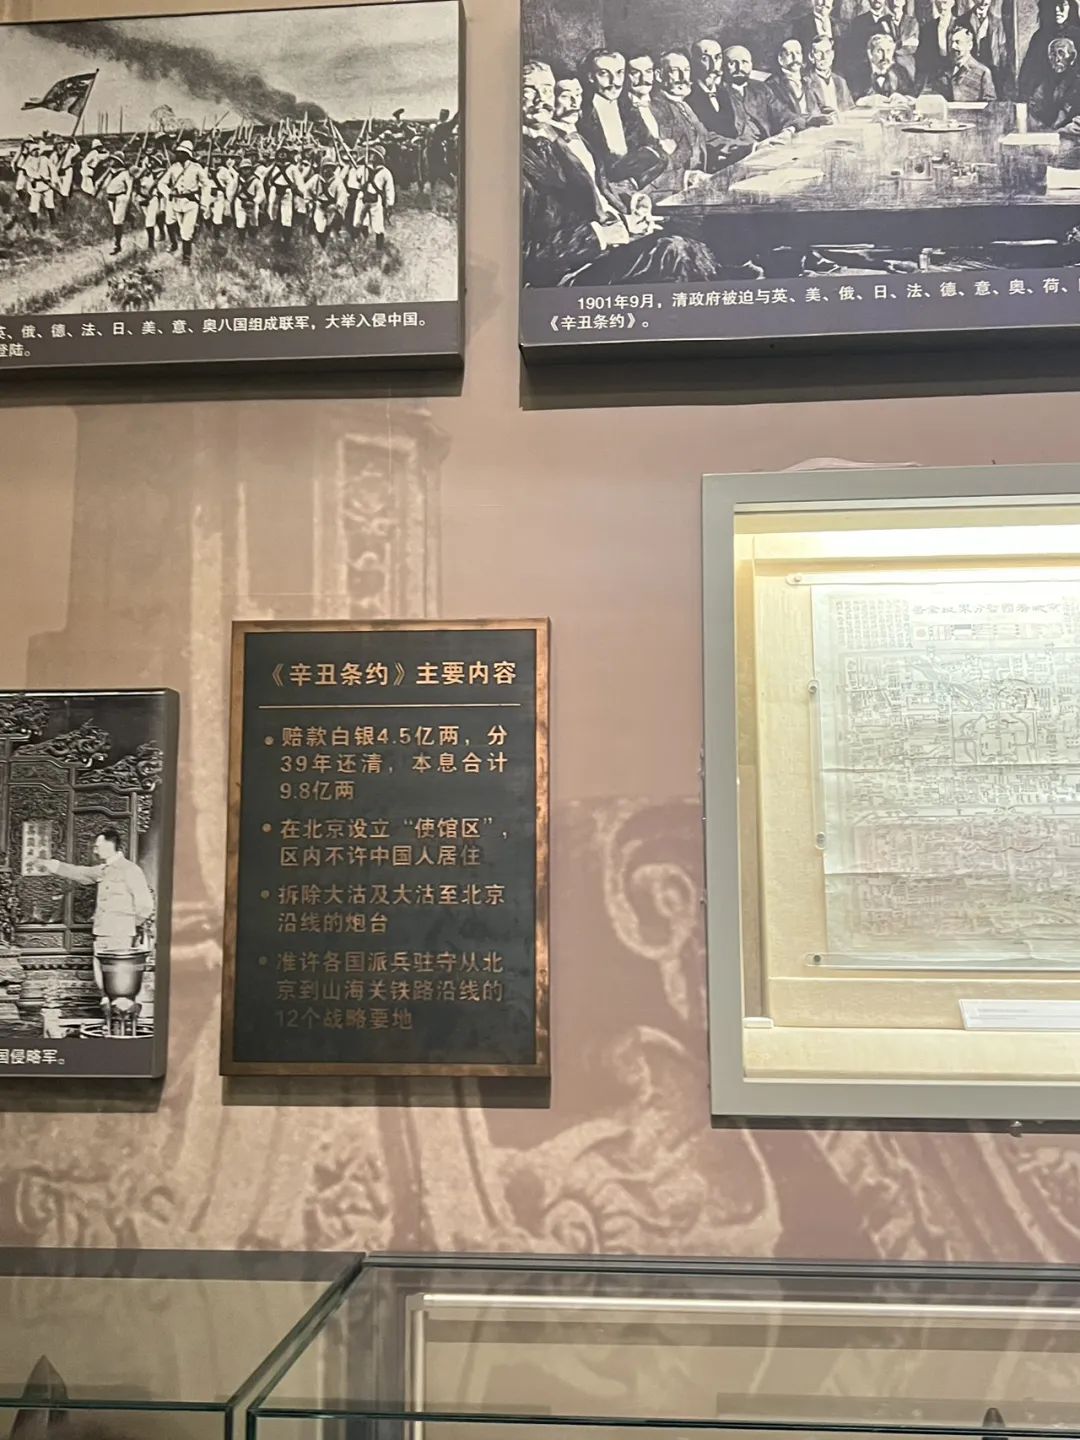 英、俄、德、法、日、美、意、奥八国组成联军，大举入侵中国。
登陆。
1901年9月，清政府被迫与英、美、俄、日、法、德、意、奥、荷、
《辛丑条约》。
《辛丑条约》主要内容
赔款白银4.5亿两，分
39年还清，本息合计
9.8亿两
在北京设立“使馆区”，
区内不许中国人居住
拆除大沽及大沽至北京
沿线的炮台
准许各国派兵驻守从北
京到山海关铁路沿线的
12个战略要地
国侵略军。